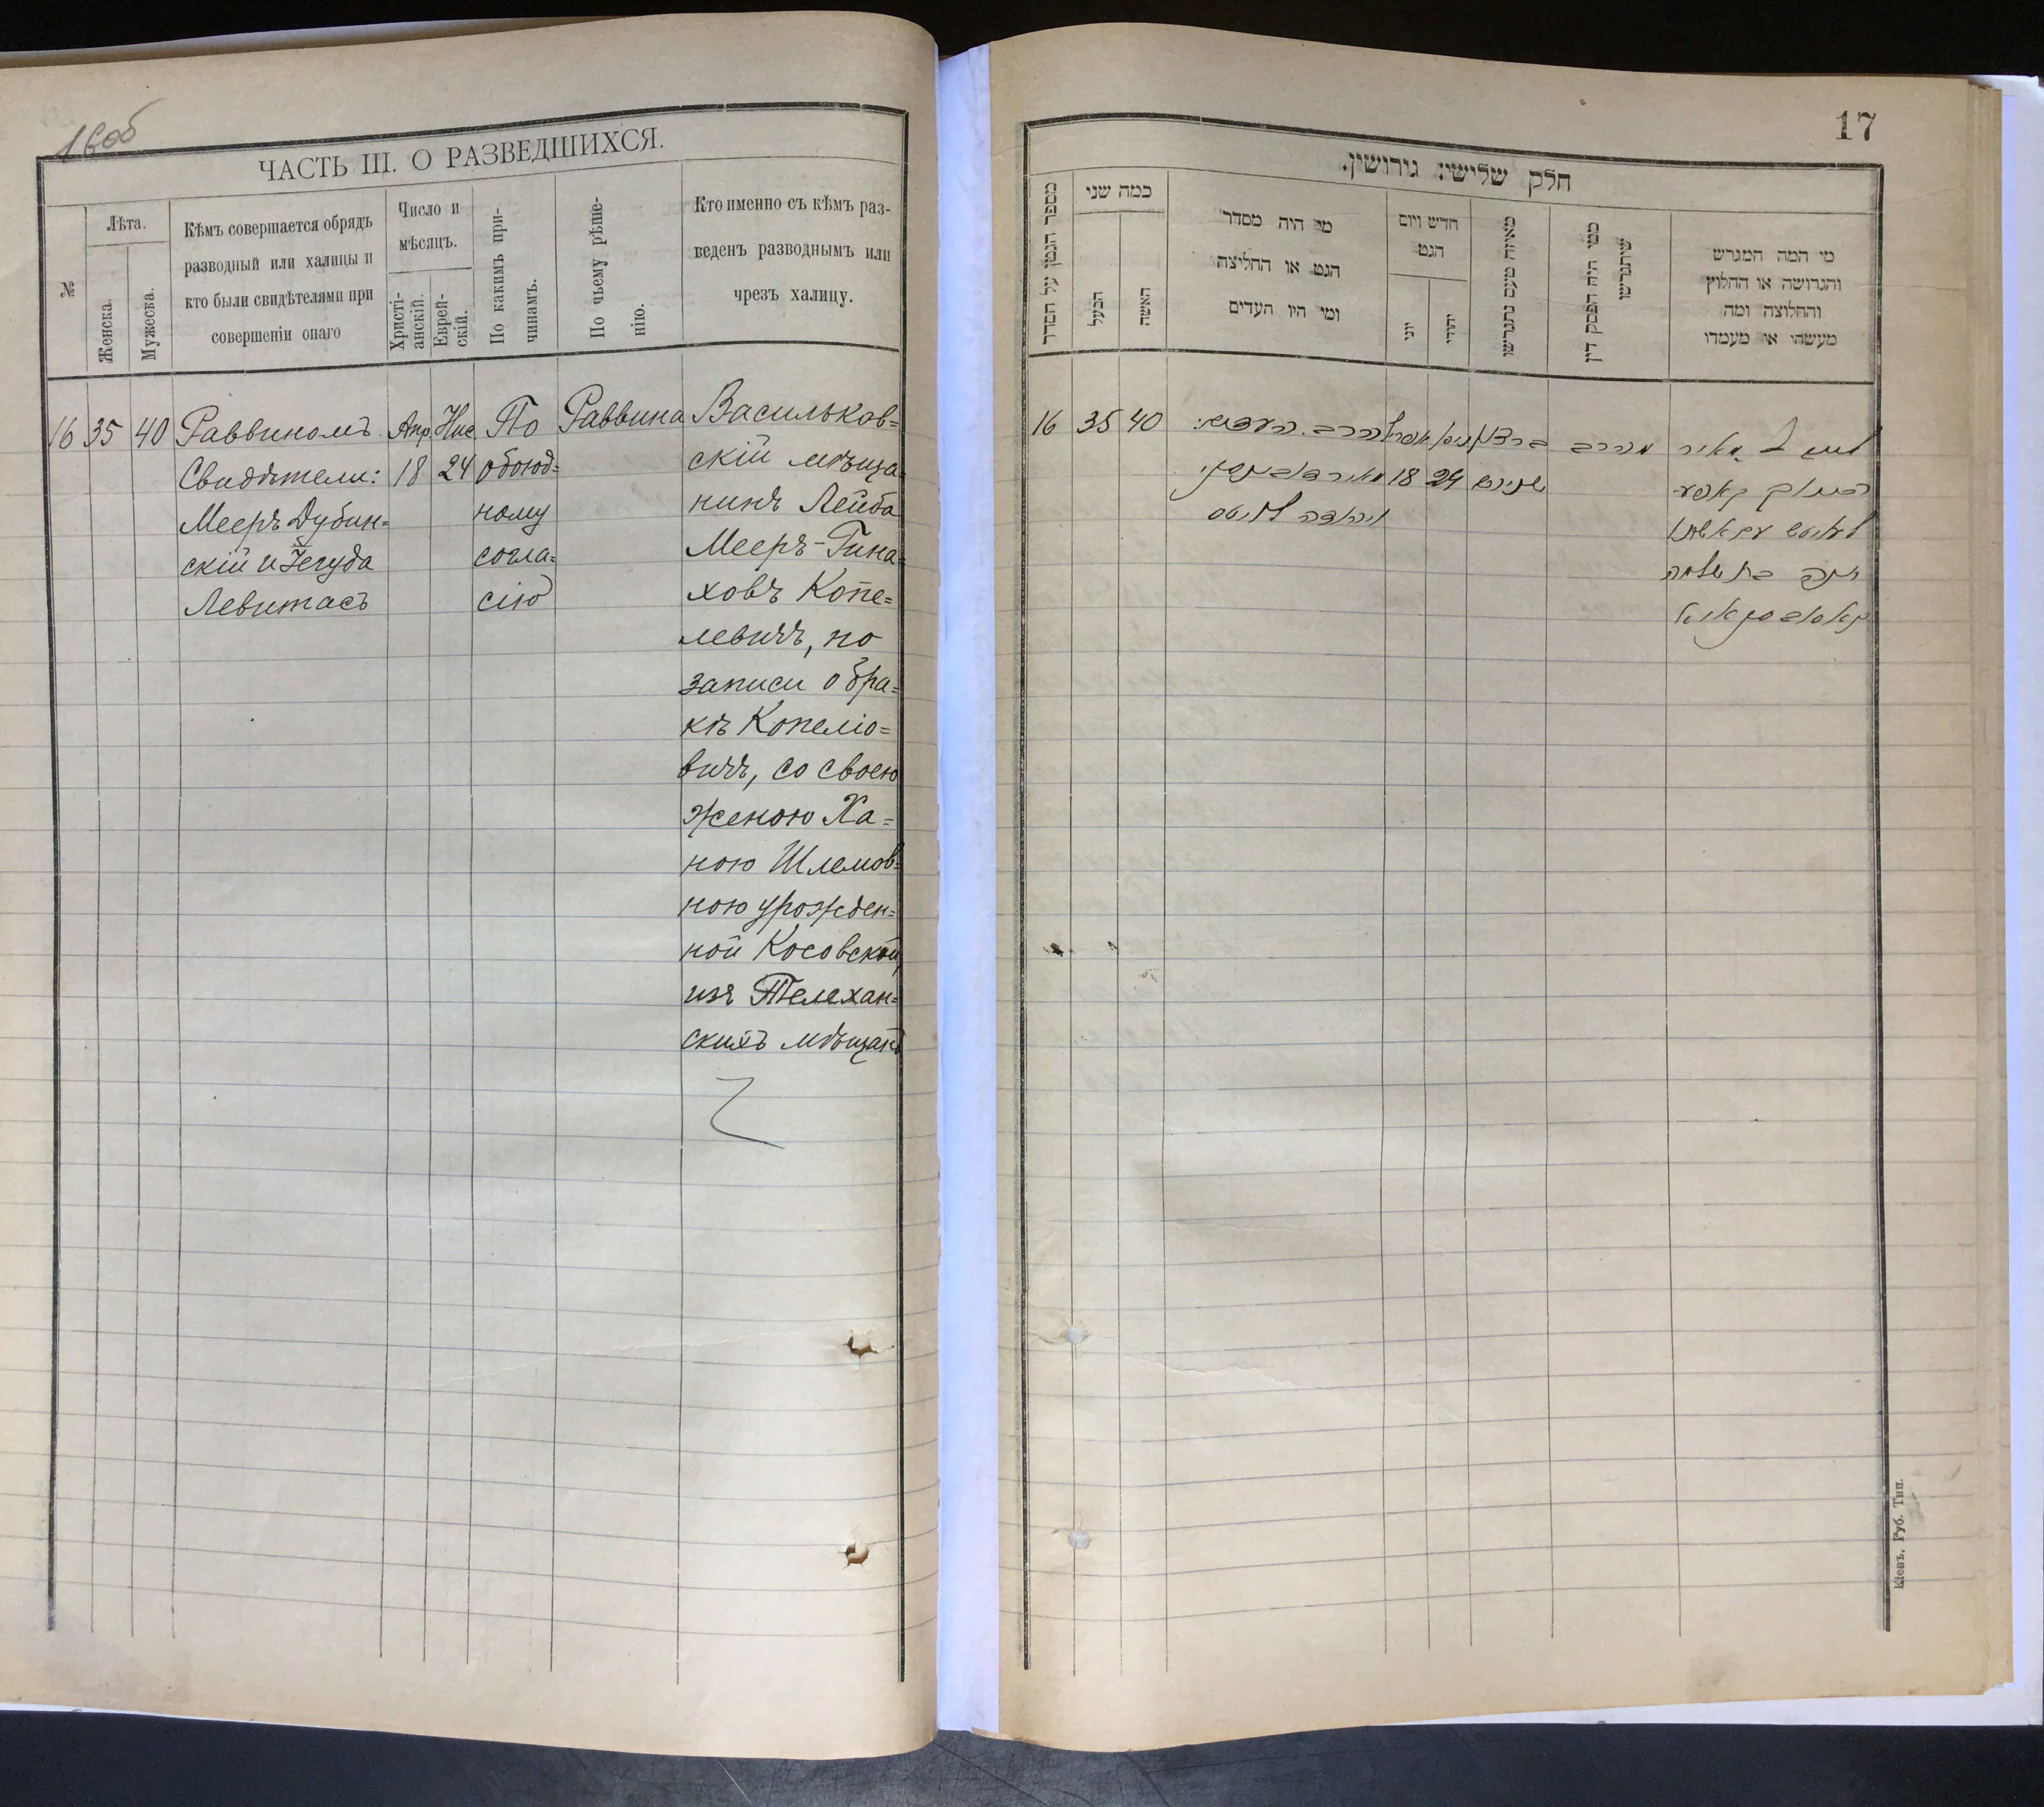 16об
ЧАСТЬ III. О РАЗВЕДШИХСЯ.
№
Лѣта.
Женска.
Мужеска.
Кѣмъ совершается обрядъ
разводный или халицы и
кто были свидѣтелями при
совершеніи онаго
Число и
мѣсяцъ.
Христі-
анскій.
Еврей-
скій.
По какимъ при-
чинамъ.
По чьему рѣше-
нію.
Кто именно съ кѣмъ раз-
веденъ разводнымъ или
чрезъ халицу.
16
35
40
Раввиномъ.
Свидѣтели:
Мееръ Дубин=
скій и Іегуда
Левитасъ
Апр
18
Нис
24
По
обоюд=
ному
согла=
сію
Раввина
Васильков=
скій мѣща=
нинъ Лейба
Мееръ-Гина=
ховъ Копе=
левичъ, по
записи о бра=
кѣ Копеліо=
вичъ, со своею
женою Ха=
ною Шлемов=
ною урожден=
ной Косовской,
изъ Телехан=
скихъ мѣщанъ
17
חלק שלישי: גירושין.
מספר הגטין על הסדר
כמה שני
הבעל
האשה
מי היה מסדר
הגט או החליצה
ומי היו העדים
חדש ויום
הגט
יוני
יהודי
מאיזה טעם נתגרשו
ממי היה הפסק דין
שיתגרשו
מי המה המגרש
והגרושה או החלוץ
והחלוצה ומה
מעשהו או מעמדו
16
35
40
הרב. העדים:
מאיר דובינסקי
אפריל
18
ניסן
24
ברצון
שניהם
מהרב
מאיר
עם אשתו
חנה בת שלמה
Кіевъ, Губ. Тип.